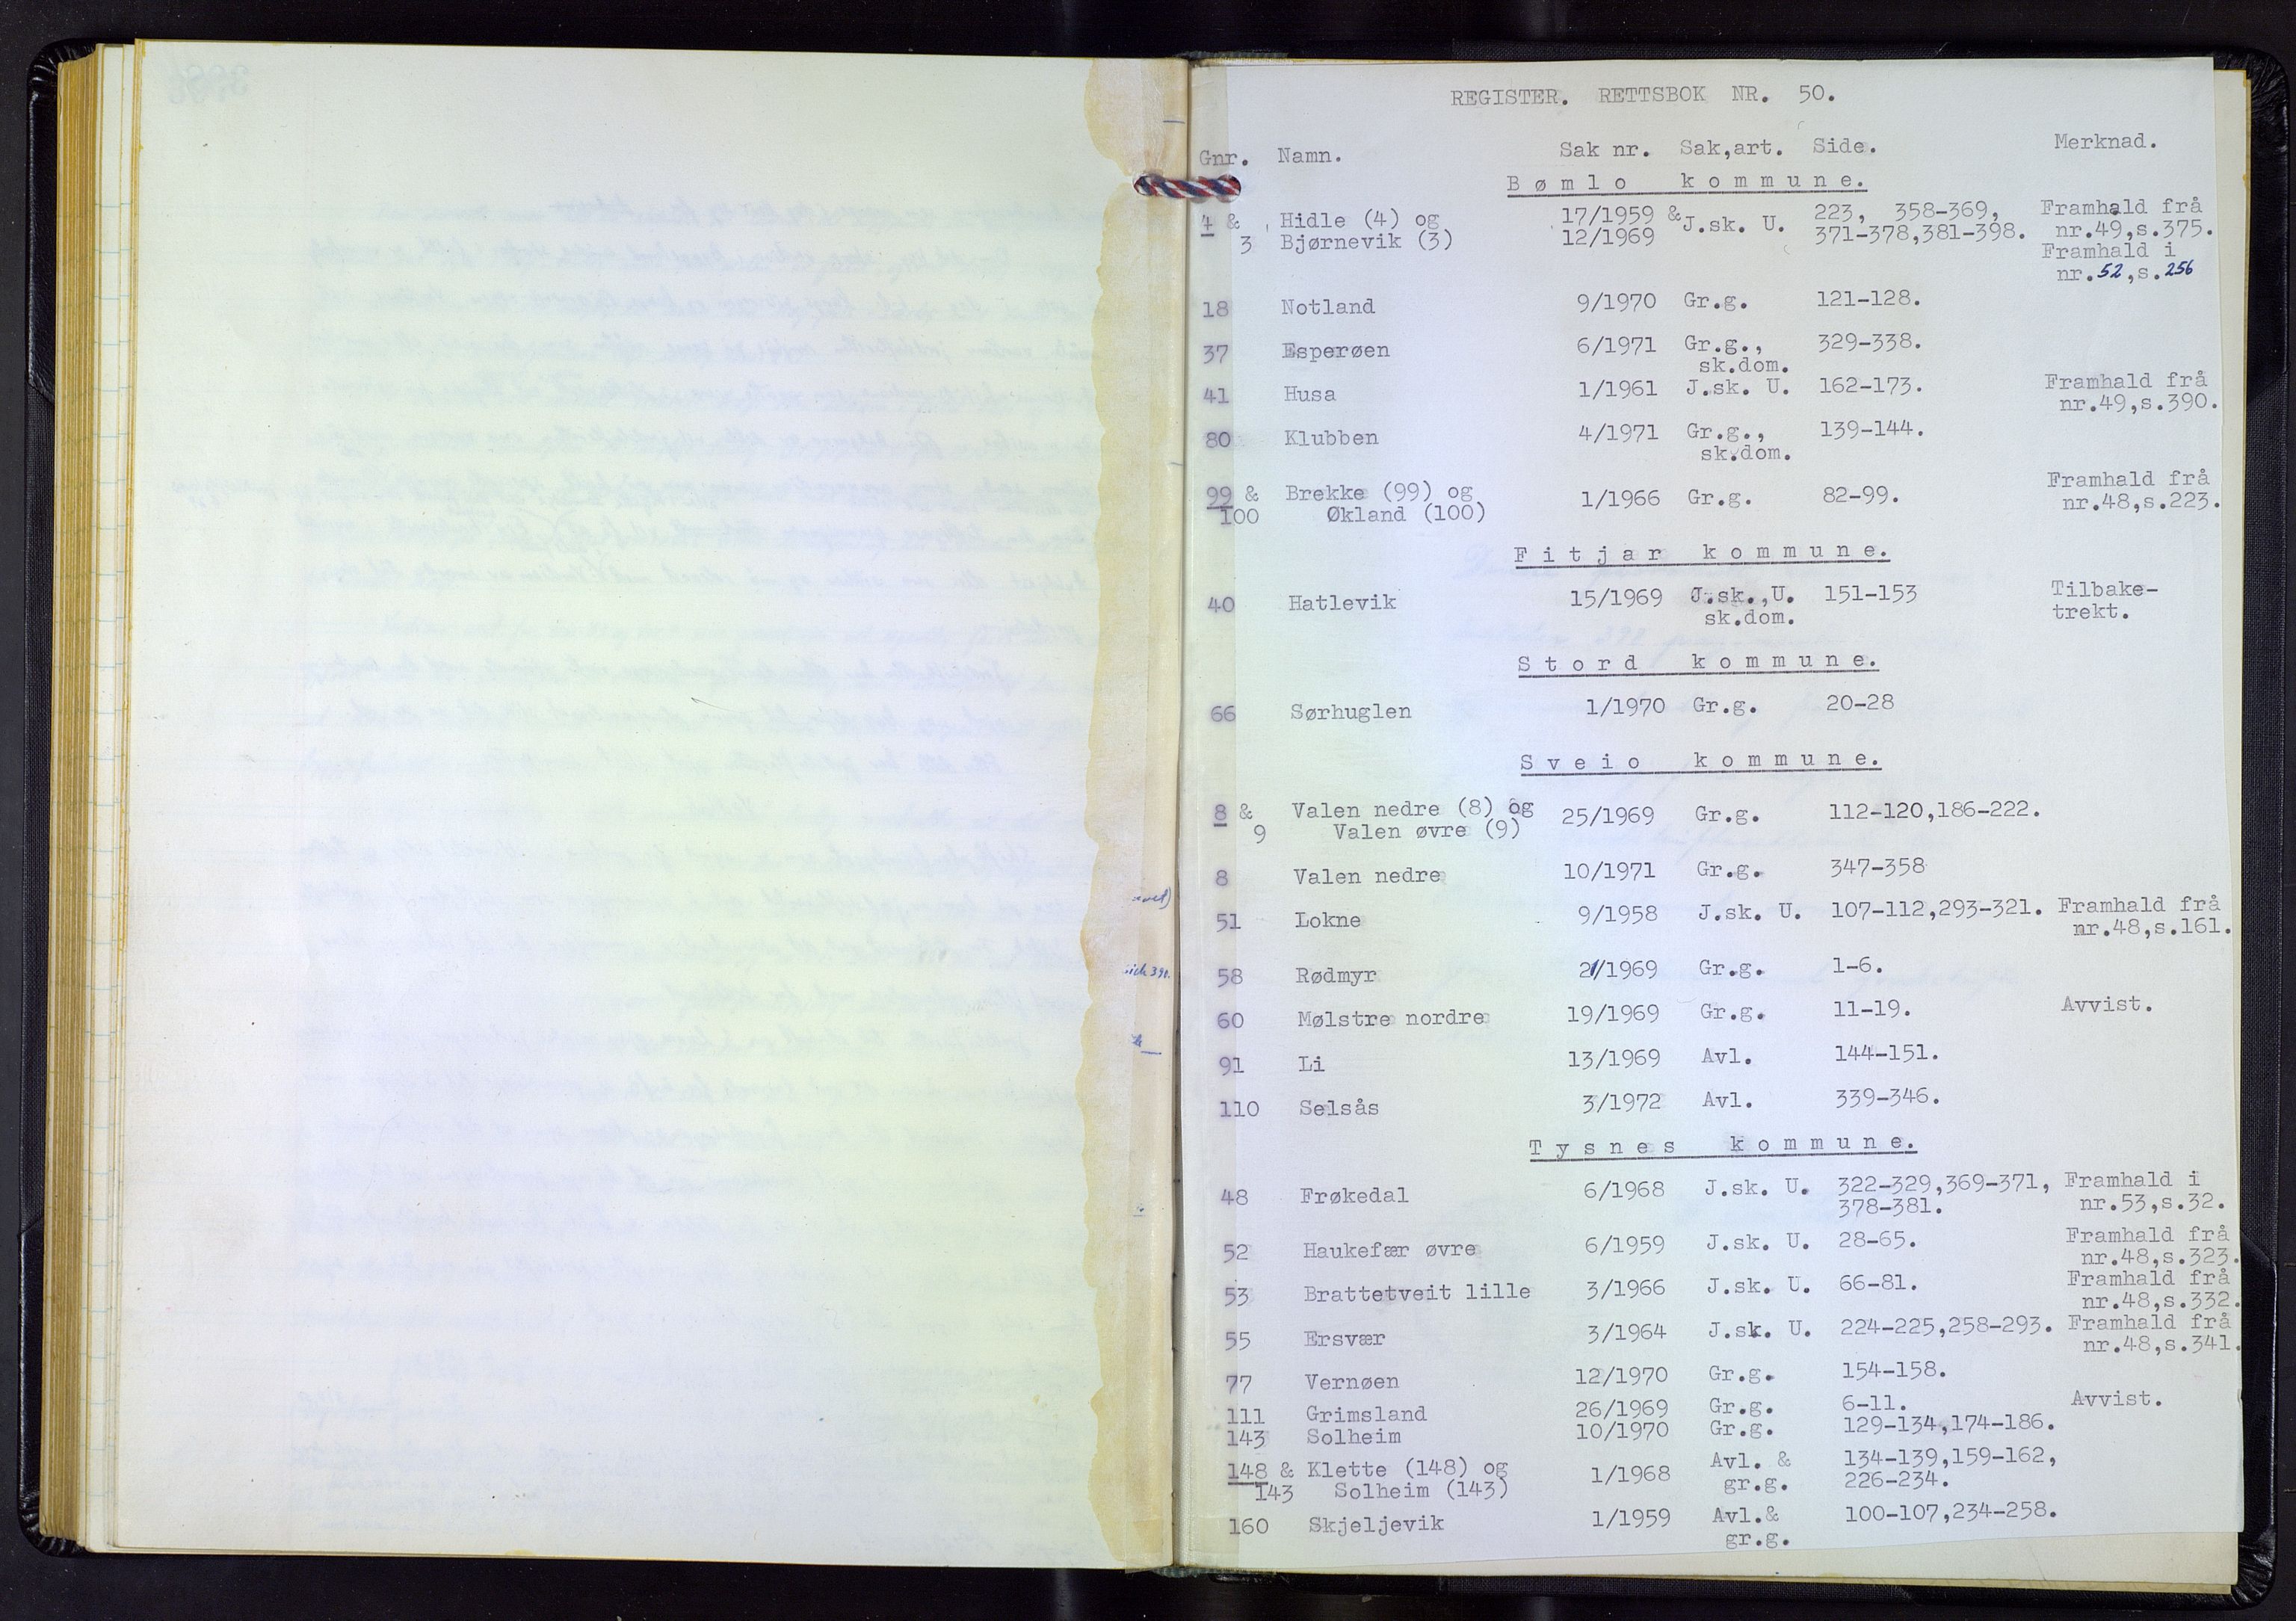 REGISTER. RETTSBOK NR. 50.
Gnr. Namn. Sak nr. Sak,art. Side. Merknad.
Bømlo kommune.
4 & Hidle (4) og 17/1959 & J.sk. U. 223, 358-369, Framhald frå
3 Bjørnevik (3) 12/1969 371-378,381-398. nr.49,s.375.
Framhald i
nr.52,s.256
18 Notland 9/1970 Gr.g. 121-128.
37 Esperøen 6/1971 Gr.g., 329-338.
sk.dom.
41 Husa 1/1961 J.sk. U. 162-173. Framhald frå
nr.49,s.390.
80 Klubben 4/1971 Gr.g., 139-144.
sk.dom.
99 & Brekke (99) og 1/1966 Gr.g. 82-99. Framhald frå
100 Økland (100) nr.48,s.223.
Fitjar kommune.
40 Hatlevik 15/1969 J.sk.,U. 151-153 Tilbake-
sk.dom. trekt.
Stord kommune.
66 Sørhuglen 1/1970 Gr.g. 20-28
Sveio kommune.
8 & Valen nedre (8) og 25/1969 Gr.g. 112-120,186-222.
9 Valen øvre (9)
8 Valen nedre 10/1971 Gr.g. 347-358
51 Lokne 9/1958 J.sk. U. 107-112,293-321. Framhald frå
nr.48,s.161.
58 Rødmyr 21/1969 Gr.g. 1-6.
60 Mølstre nordre 19/1969 Gr.g. 11-19. Avvist.
91 Li 13/1969 Avl. 144-151.
110 Selsås 3/1972 Avl. 339-346.
Tysnes kommune.
48 Frøkedal 6/1968 J.sk. U. 322-329,369-371, Framhald i
378-381. nr.53,s.32.
52 Haukefær øvre 6/1959 J.sk. U. 28-65. Framhald frå
nr.48,s.323.
53 Brattetveit lille 3/1966 J.sk. U. 66-81. Framhald frå
nr.48,s.332.
55 Ersvær 3/1964 J.sk. U. 224-225,258-293. Framhald frå
nr.48,s.341.
77 Vernøen 12/1970 Gr.g. 154-158.
111 Grimsland 26/1969 Gr.g. 6-11. Avvist.
143 Solheim 10/1970 Gr.g. 129-134,174-186.
148 & Klette (148) og 1/1968 Avl. & 134-139,159-162,
143 Solheim (143) gr.g. 226-234.
160 Skjeljevik 1/1959 Avl.& 100-107,234-258.
gr.g.